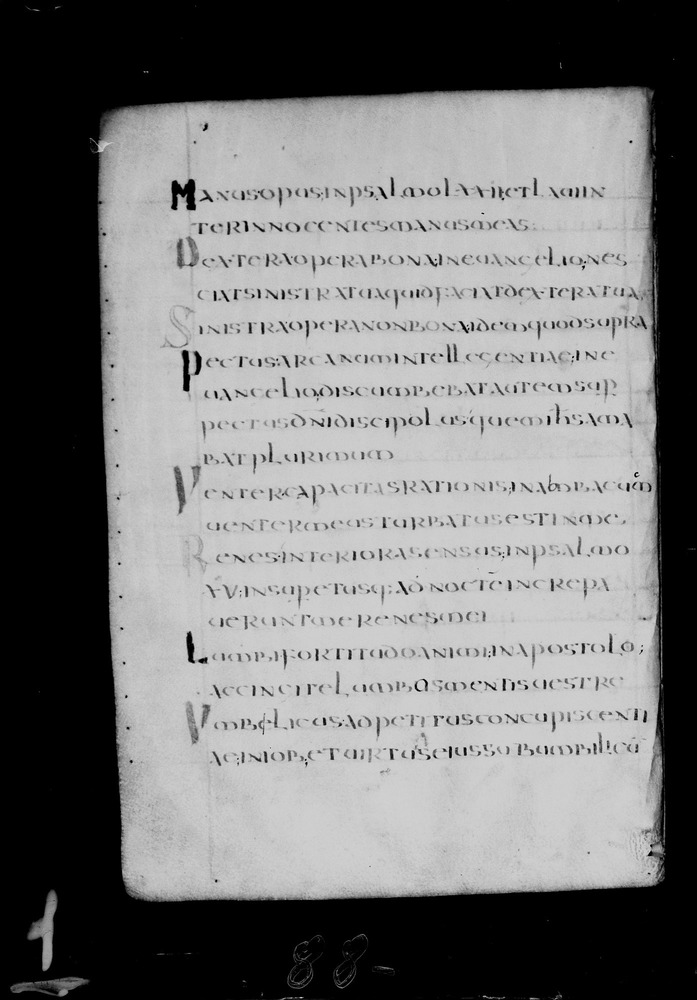 MANUSOPUS;INPSALMOLXXII;ETLAUIIN
TERINNOCENTESMANUSMEAS;
DEXTERAOPERABONA;INEUANGELIO;NES
CIATSINISTRATUAQUIDFACIATDEXTERATUA;
SINISTRAOPERANONBONA;IDEMQUODSUPRA
PECTUSARCANUMINTELLEGENTIAE;INE
UANGELIO;DISCUMBEBATAUTEMSUP
PECTUSDNIDISCIPOLUSQUEMIHSAMA
BATPLURIMUM
VENTERCAPACITASRATIONIS;INAMBACUM
UENTERMEUSTURBATUSESTINME;
RENESINTERIORASENSUS;INPSALMO
XV;INSUPETUSQ;ADNOCTEINCREPA
UERUNTMERENESMEI
LUMBIFORTITUDOANIMI;INAPOSTOLO;
ACCINGITELUMBOSMENTISUESTRE
VMBELICUSADPETITUSCONCUPISCENTI
AE;INIOB;ETUIRTUSEIUSSUBUMBILICŪ